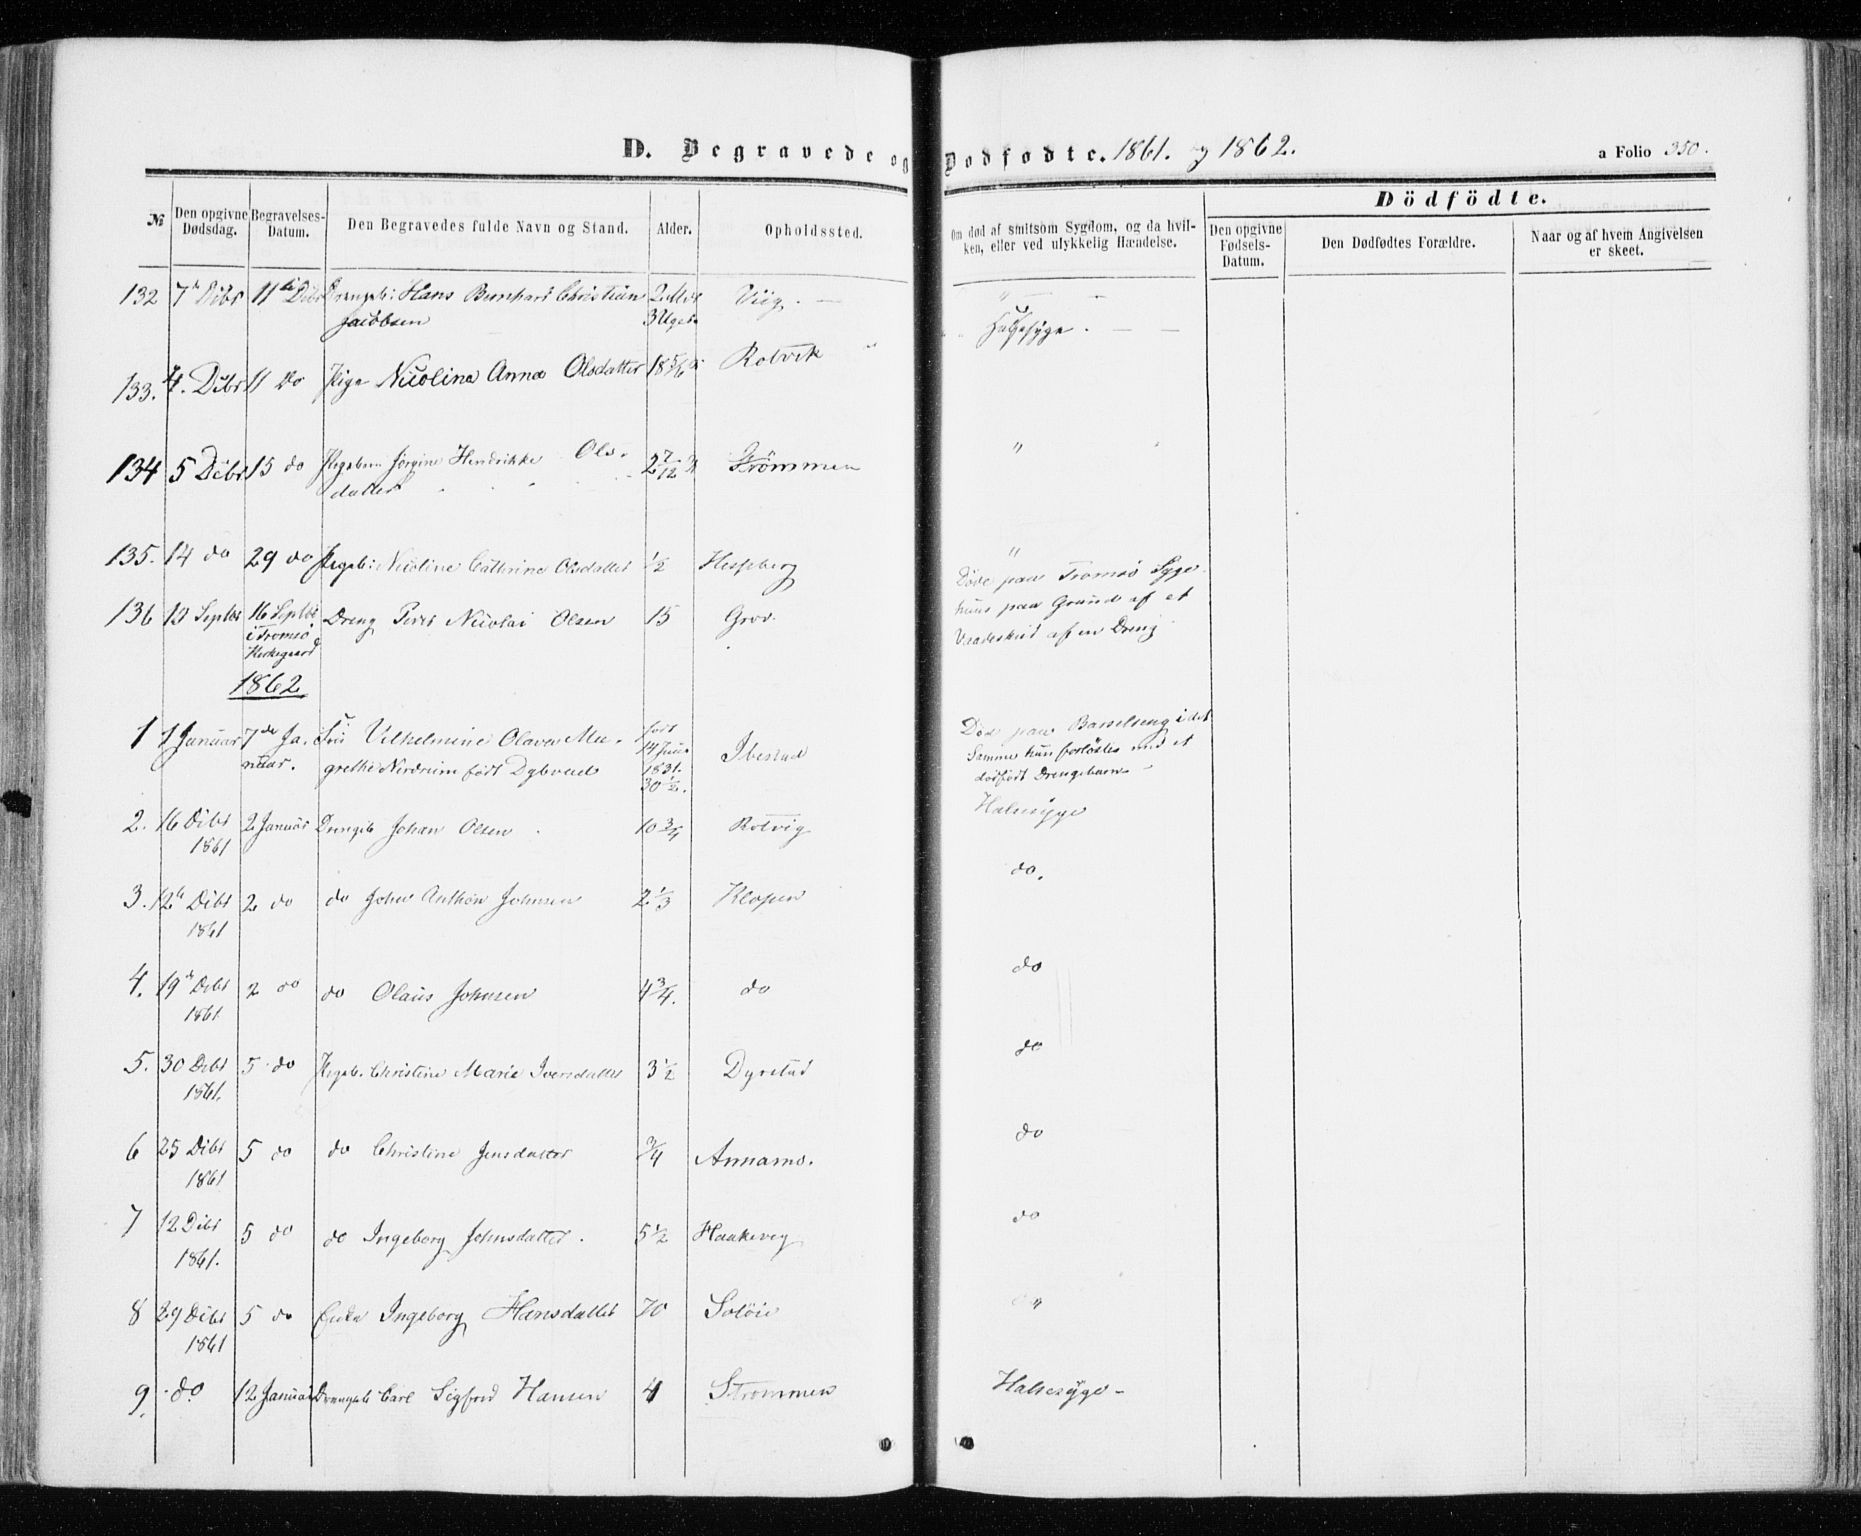 D. Begravede og Dødfødte. 1861. og 1862.
a Folio 350.
Dödfödte.
№
Den opgivne Dødsdag.
Begravelses-Datum.
Den Begravedes fulde Navn og Stand.
Alder.
Opholdssted.
Om død af smitsom Sygdom, og da hvil-
ken, eller ved ulykkelig Hændelse.
Den opgivne Fødsels-Datum.
Den Dødfødtes Forældre.
Naar og af hvem Angivelsen
er skeet.
132 7de Dcbr 11te Dcbr Drengeb: Hans Bernhard Christian 2 Mdr Viig. "
Jacobsen 3 Uger Halssyge.
133. 4. Dcbr 11 do Pige Nicolina Anna Olsdatter 18 5/6 Rotvik "
134 5 Dcbr 15 do Pigebarn Jørgine Hendrikke Ols- 2 7/12 Strömmen "
datter
135. 14 do 29 do Pigeb: Nicoline Cathrine Olsdatter 1/2 Hessjberg "
136 13 Septbr 16 Septbr Dreng Peder Nicolai Olsen 15 Grov. Døde paa Tromsö Syge-
i Tromsö huus paa Grund af et
Kirkegaard Vaadeskud af en Dreng
1862
1 1 Januar 7de Ja- Fru Vilhelmine Olava Ma- født Ibestad Død paa Barselseng i det
nuar. grethe Nerdrum født Dybvad 14 Juni Samme hun forløstes med et
1831. dødfødt Drengebarn
30 1/2.
2. 16 Dcbr 2 Januar Drengeb Johan Olsen 10 3/4 Rotvig Halssyge
1861
3. 12te Dcbr 2 do do Johan Anthon Johnsen 2 1/3 Klopen do.
1861
4. 19de Dcbr 2 do do Olaus Johnsen 4 3/4. do do
1861.
5. 30 Dcbr 5 do Pigeb. Christine Marie Iversdatter 3 1/2 Dyrstad do
1861.
6 25 Dcbr 5 do do Christine Jensdatter 3/4 Annamo. do
1861
7 12 Dcbr 5 do do Ingeborg Johnsdatter. 5 1/2 Haakevig do
1861.
8 29 Dcbr 5 do Enke Ingeborg Hansdatter 70 Solöie "
1861
9. do 12 Januar Drengeb Carl Sigfred Hansen 4 Strømmen Halssyge